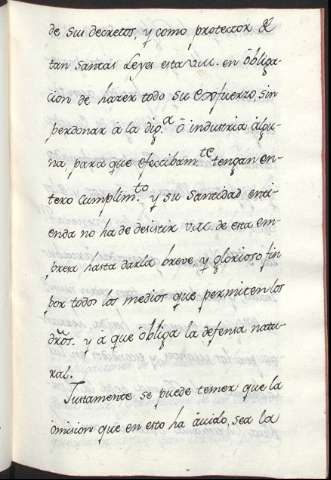 de sus decretos, y como protector de
tan santas leyes esta V.M. en obliga-
cion de hazer todo su esfuerzo, sin
perdonar â la dig.ª ô industria algu-
na para que efectibam.te tengan en-
tero cumplim.to y su Santidad enti-
enda no ha de desistir V.M. de esta em-
presa hasta darla breve, y glorioso fin
por todos los medios que permiten los
dr̃os. y a que obliga la defensa natu-
ral.
Justamente se puede temer que la
omision que en esto ha âuido, sea la